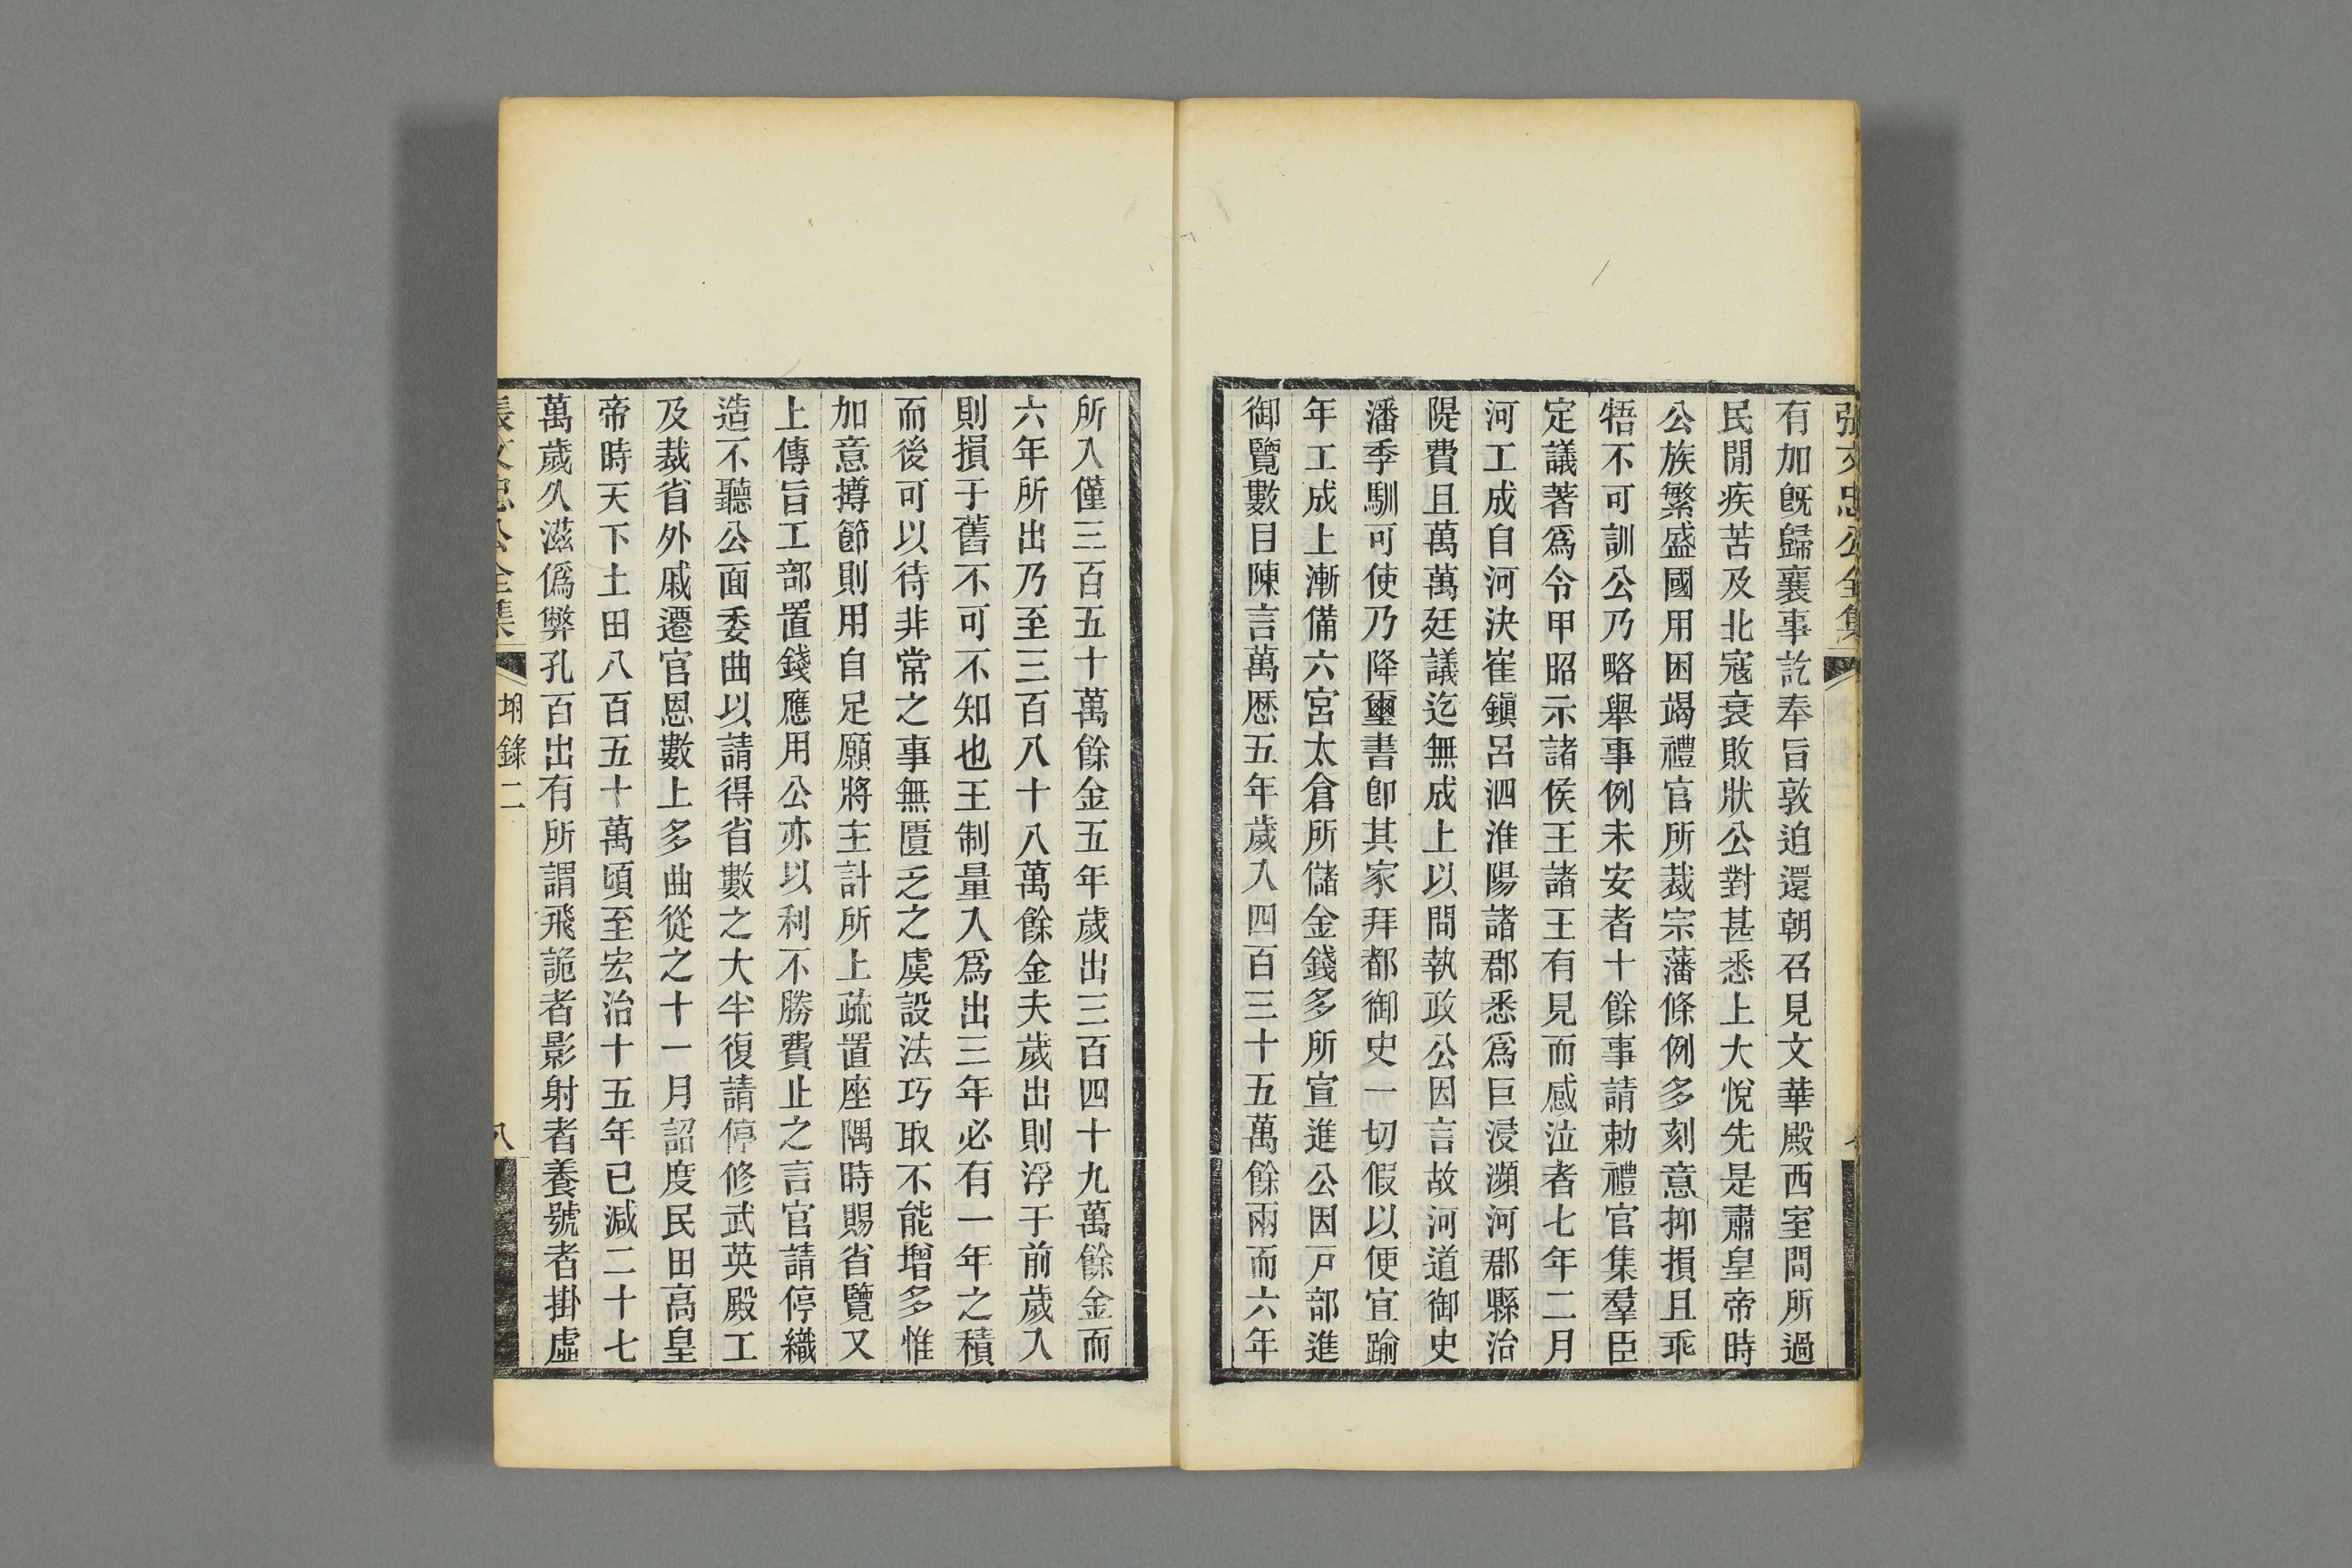 張文忠公全集
有加旣歸襄事訖奉旨敦迫還朝召見文華殿西室問所過
民閒疾苦及北寇衰敗狀公對甚悉上大悅先是肅皇帝時
公族繁盛國用困竭禮官所裁宗藩條例多刻意抑損且乖
牾不可訓公乃略舉事例未安者十餘事請勅禮官集羣臣
定議著爲令甲昭示諸侯王諸王有見而感泣者七年二月
河工成自河決崔鎭呂泗淮陽諸郡悉爲巨浸瀕河郡縣治
隄費且萬萬廷議迄無成上以問執政公因言故河道御史
潘季馴可使乃降璽書卽其家拜都御史一切假以便宜踰
年工成上漸備六宮太倉所儲金錢多所宣進公因戸部進
御覽數目陳言萬厯五年歲入四百三十五萬餘兩而六年
所入僅三百五十萬餘金五年歲出三百四十九萬餘金而
六年所出乃至三百八十八萬餘金夫歲出則浮于前歲入
則損于舊不可不知也王制量入爲出三年必有一年之積
而後可以待非常之事無匱乏之虞設法巧取不能增多惟
加意撙節則用自足願將主計所上疏置座隅時賜省覽又
上傳旨工部置錢應用公亦以利不勝費止之言官請停織
造不聽公面委曲以請得省數之大半復請停修武英殿工
及裁省外戚遷官恩數上多曲從之十一月詔度民田高皇
帝時天下土田八百五十萬頃至宏治十五年已減二十七
萬歲久滋僞弊孔百出有所謂飛詭者影射者養號者掛虛
張文忠公全集
坿錄二
八